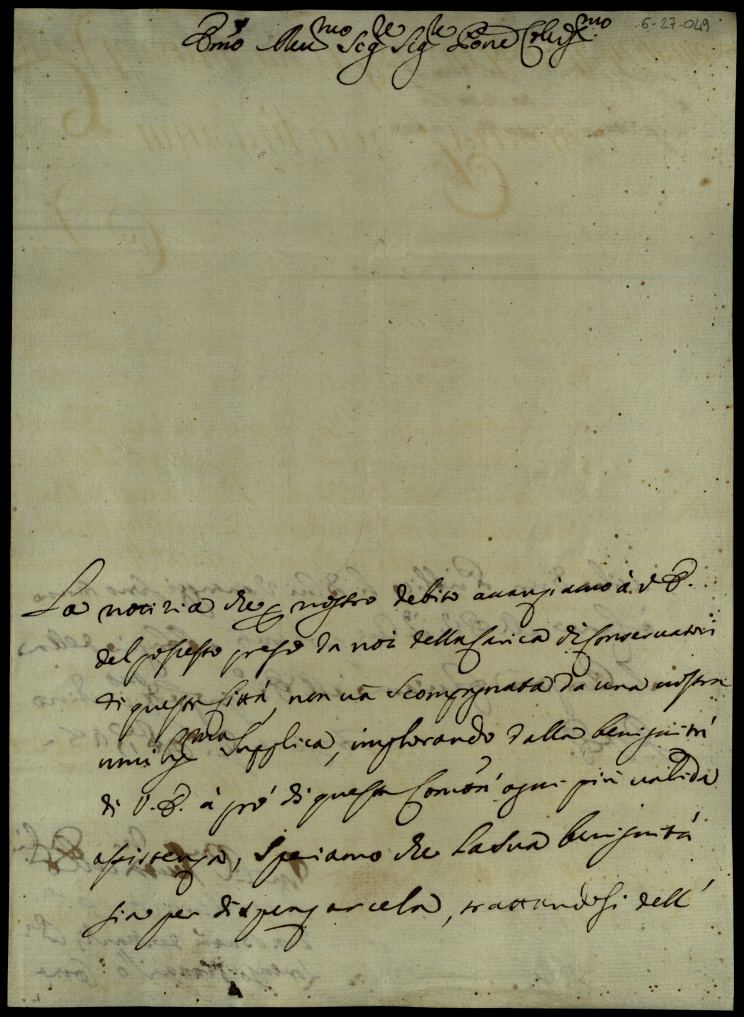 6-27-049
Emo Reu.mo Sig.re Sig.re Prone Col.mo
La notizia che per nostro debito auanziamo à V. E.
del possesso preso da noi della Carica di Conseruatori
di questa Città, non uà scompagnata da una nostra
umil.ma supplica, implorando dalla benignità
di V. E. à prò di questa Com.tà ogni più ualida
assistenza, speriamo che la sua benignità
sia per dispensarcela, trattandosi dell'